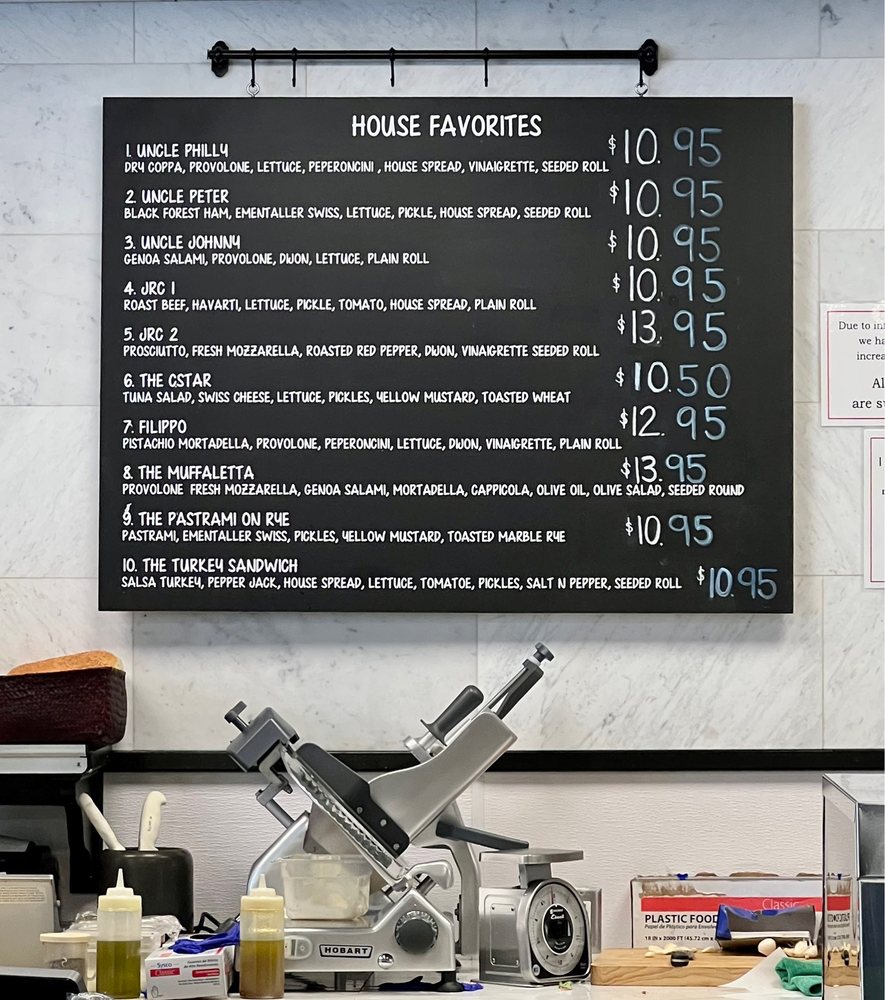 HOUSE FAVORITES
1. UNCLE PHILLY $10.95
DRY COPPA, PROVOLONE, LETTUCE, PEPERONCINI , HOUSE SPREAD, VINAIGRETTE, SEEDED ROLL
2. UNCLE PETER $10.95
BLACK FOREST HAM, EMENTALLER SWISS, LETTUCE, PICKLE, HOUSE SPREAD, SEEDED ROLL
3. UNCLE JOHNNY $10.95
GENOA SALAMI, PROVOLONE, DIJON, LETTUCE, PLAIN ROLL
4. JRC 1 $10.95
ROAST BEEF, HAVARTI, LETTUCE, PICKLE, TOMATO, HOUSE SPREAD, PLAIN ROLL
5. JRC 2 $13.95
PROSCIUTTO, FRESH MOZZARELLA, ROASTED RED PEPPER, DIJON, VINAIGRETTE SEEDED ROLL
6. THE CSTAR $10.50
TUNA SALAD, SWISS CHEESE, LETTUCE, PICKLES, YELLOW MUSTARD, TOASTED WHEAT
7. FILIPPO $12.95
PISTACHIO MORTADELLA, PROVOLONE, PEPERONCINI, LETTUCE, DIJON, VINAIGRETTE, PLAIN ROLL
8. THE MUFFALETTA $13.95
PROVOLONE FRESH MOZZARELLA, GENOA SALAMI, MORTADELLA, CAPPICOLA, OLIVE OIL, OLIVE SALAD, SEEDED ROUND
9. THE PASTRAMI ON RYE $10.95
PASTRAMI, EMENTALLER SWISS, PICKLES, YELLOW MUSTARD, TOASTED MARBLE RYE
10. THE TURKEY SANDWICH
SALSA TURKEY, PEPPER JACK, HOUSE SPREAD, LETTUCE, TOMATOE, PICKLES, SALT N PEPPER, SEEDED ROLL $10.95
Due to
we ha
increa
Al
are su
HOBART
Sysco
Classic
Classic
PLASTIC FOOD
Papel de Plástico para
18 IN X 2000 FT (45.72 cm x